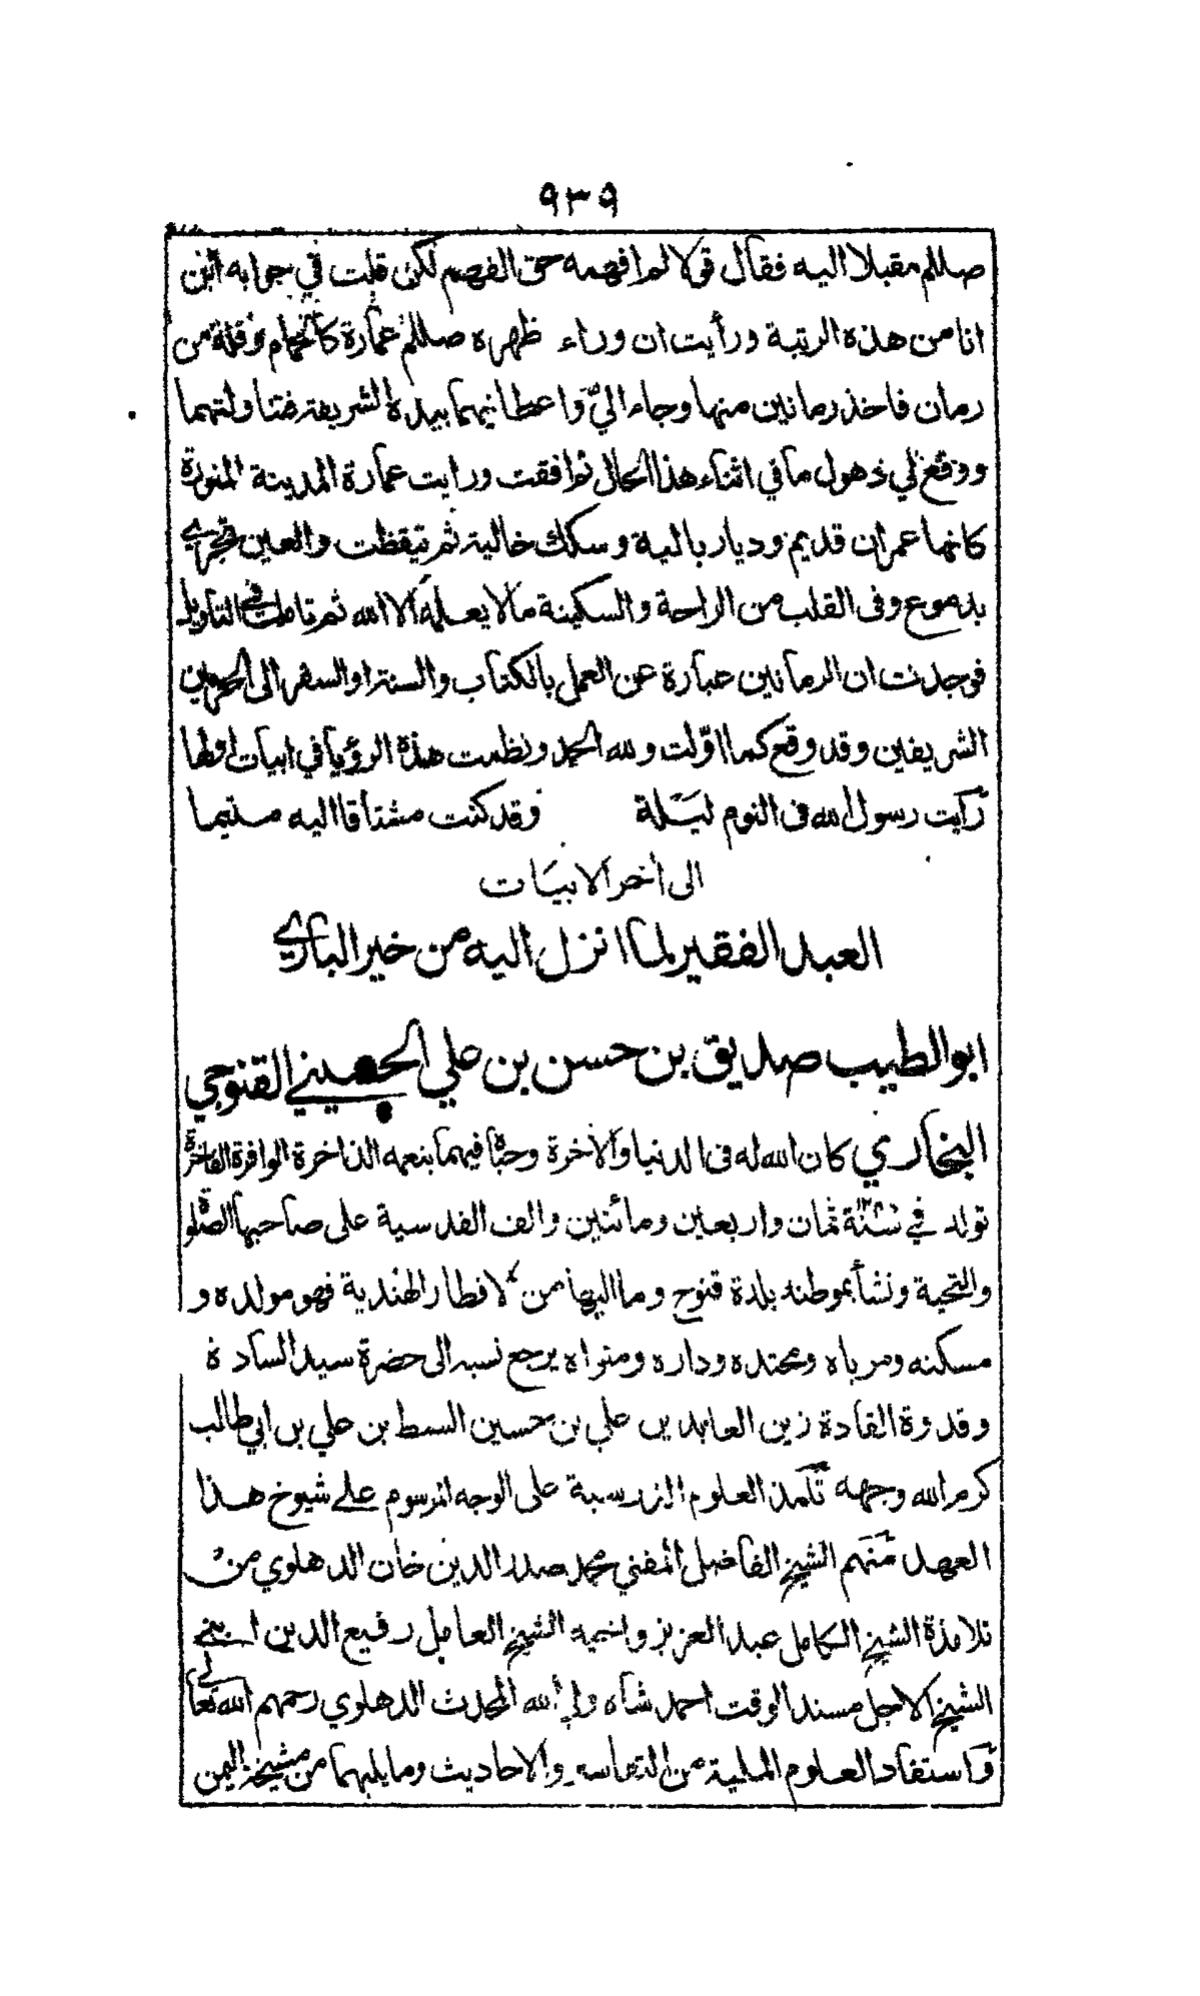 ٩٣٩
صللم مقبلا اليه فقال قولا لم افهمه حق الفهم لكن قلت في جوابه أين
انا من هذه الرتبة ورأيت ان وراء ظهره صللم عمارة كالحمام وقلة من
رمان فاخذ رمانين منها وجاء اليّ واعطانيهما بيده الشريفة فتناولتهما
ووقع لي ذهول ما في اثناء هذا الحال ثم افقت ورايت عمارة المدينة المنورة
كانها عمران قديم وديار بالية وسكك خالية ثم تيقظت والعين تجري
بدموع وفى القلب من الراحة والسكينة مالا يعلمه الا الله ثم تاملت في التاويل
فوجدت ان الرمانين عبارة عن العمل بالكتاب والسنة او السفر الى الحرمين
الشريفين وقد وقع كما اوّلت ولله الحمد ونظمت هذه الرؤيا في ابيات اولها
رَأيت رسول الله فى النوم ليَلة وقد كنت مشتاقا اليه متيما
الى أخر الابيَات
العبد الفقير لما انزل اليه من خير الباري
ابو الطيب صديق بن حسن بن علي الحسيني القنوجي
البخاري كان الله له فى الدنيا والأخرة وحباه فيهما بنعمه الذاخرة الوافرة الفاخرة
تولد في سنة ١٢٤٨ ثمان واربعين ومائتين والف القدسية على صاحبها الصلوة
والتحية ونشأ بموطنه بلدة قنوج وما اليها من الاقطار الهندية فهو مولده و
مسكنه ومرباه ومحتده وداره ومثواه يرجع نسبه الى حضرة سيد السادة
وقدوة القادة زين العابدين علي بن حسين السبط بن علي بن ابي طالب
كرم الله وجهه تلمذ العلوم الدرسية على الوجه المرسوم على شيوخ هذا
العهد منهم الشيخ الفاضل المفتي محمد صدر الدين خان الدهلوي من
تلامذة الشيخ الكامل عبد العزيز واخيه الشيخ العامل رفيع الدين ابني
الشيخ الاجل مسند الوقت احمد شاه ولي الله المحدث الدهلوي رحمهم الله تعالى
وَاستفاد العلوم الملية من التفاسير والاحاديث وما يليهما من مشيخة اليمن